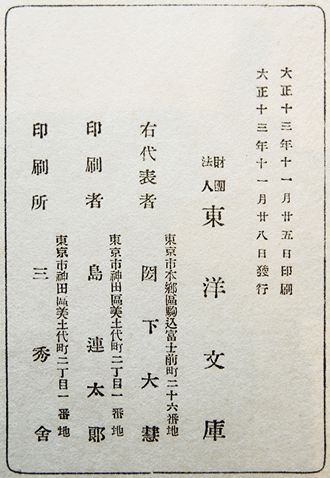 大正十三年十一月廿五日印刷
大正十三年十一月廿八日發行
財團法人 東洋文庫
東京市本鄕區駒込富士前町二十六番地
右代表者 圀下大慧
東京市神田區美土代町二丁目一番地
印刷者 島連太郎
東京市神田區美土代町二丁目一番地
印刷所 三秀舍